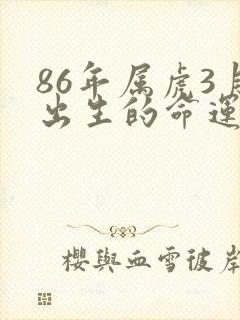 86年属虎3月
出生的命運
櫻與血雪彼岸